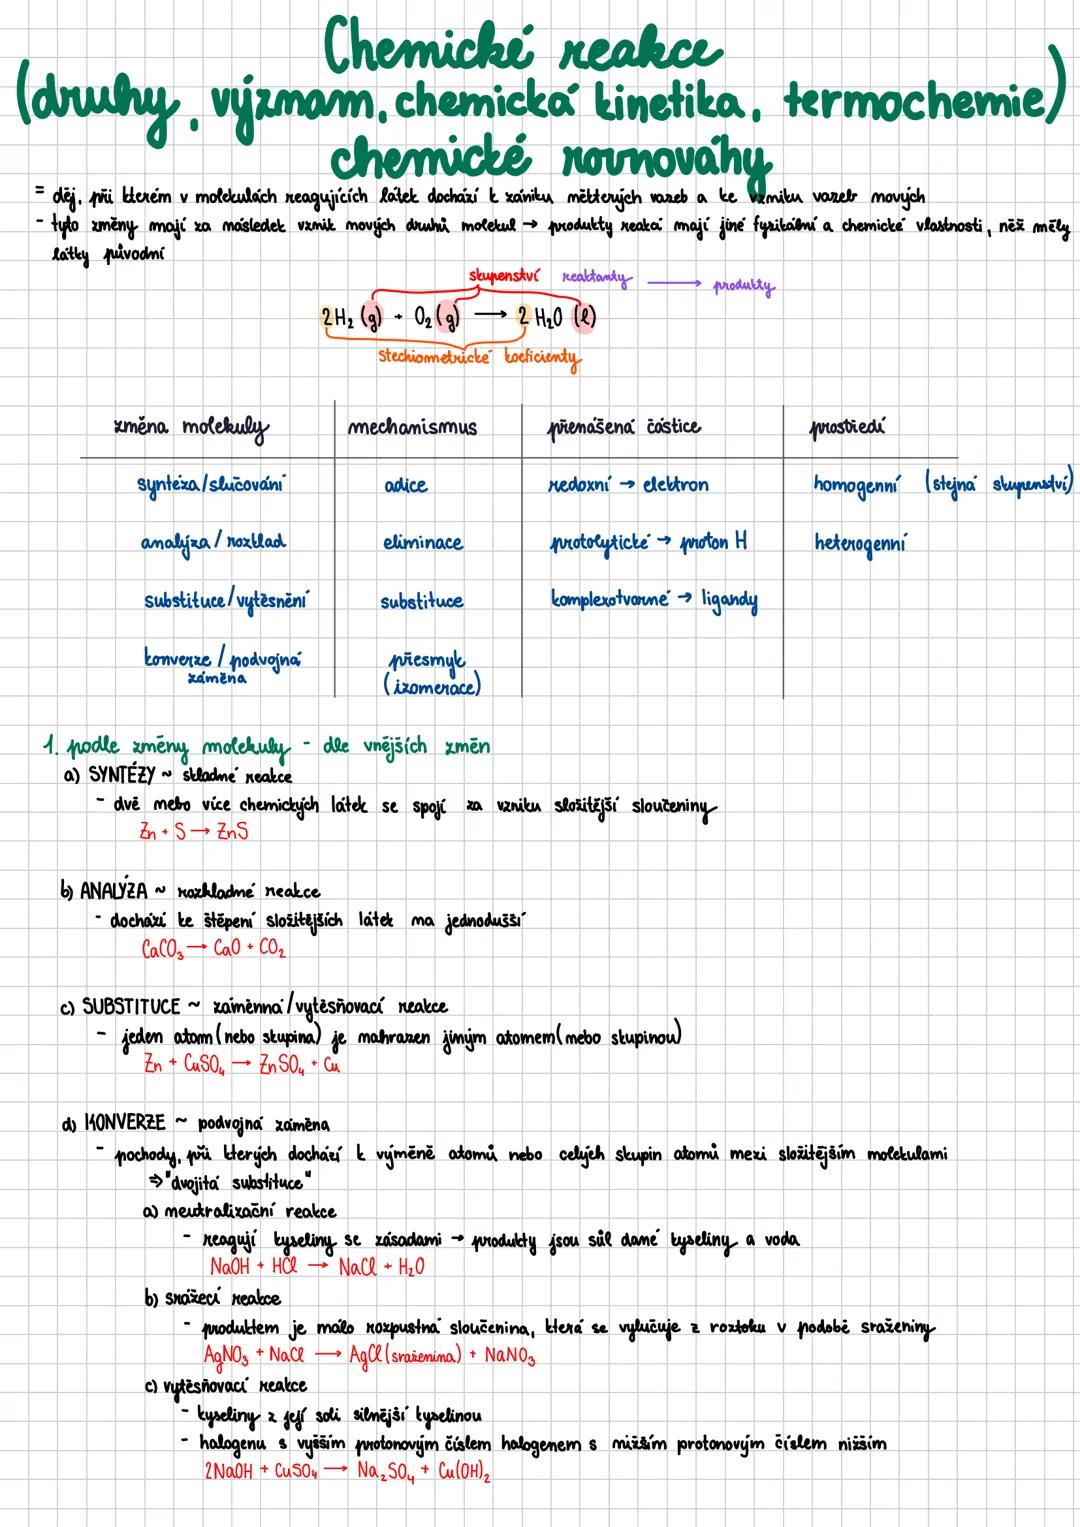 Chemické reakce
(druhy, význam, chemická kinetika, termochemie)
chemické rovnováhy
= děj, při kterém v molekulách reagujících látek dochází k zániku některých vazeb a ke vzniku vazeb nových
- tyto změny mají za následek vznik nových druhů molekul → produkty reakcí mají jiné fyzikální a chemické vlastnosti, něž měly
látky původní
skupenství reaktanty → produkty
2H₂ (g) + O₂ (g) → 2 H₂O (l)
Stechiometrické koeficienty
změna molekuly mechanismus přenášená částice prostředí
syntéza/slučování adice redoxní → elektron homogenní (stejná skupenství)
analýza / rozklad eliminace protolytické → proton H heterogenní
substituce/vytěsnění substituce komplexotvorné → ligandy
konverze / podvojná přesmyk
záměna (izomerace)
1. podle změny molekuly - dle vnějších změn
a) SYNTÉZY ~ skladné reakce
- dvě nebo více chemických látek se spojí za vzniku složitější sloučeniny
Zn + S → ZnS
b) ANALÝZA ~ rozkladné reakce
- dochází ke štěpení složitějších látek na jednodušší
CaCO₃ → CaO + CO₂
c) SUBSTITUCE ~ záměnná/vytěsňovací reakce
- jeden atom (nebo skupina) je nahrazen jiným atomem (nebo skupinou)
Zn + CuSO₄ → ZnSO₄ + Cu
d) KONVERZE ~ podvojná záměna
- pochody, při kterých dochází k výměně atomů nebo celých skupin atomů mezi složitějším molekulami
⇒ "dvojitá substituce"
a) neutralizační reakce
- reagují kyseliny se zásadami → produkty jsou sůl dané kyseliny a voda
NaOH + HCl → NaCl + H₂O
b) srážecí reakce
- produktem je málo rozpustná sloučenina, která se vylučuje z roztoku v podobě sraženiny
AgNO₃ + NaCl → AgCl (sraženina) + NaNO₃
c) vytěsňovací reakce
- kyseliny z její soli silnější kyselinou
- halogenu s vyšším protonovým číslem halogenem s nižším protonovým číslem nižším
2NaOH + CuSO₄ → Na₂SO₄ + Cu(OH)₂